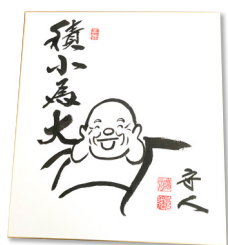 積小為大
守人